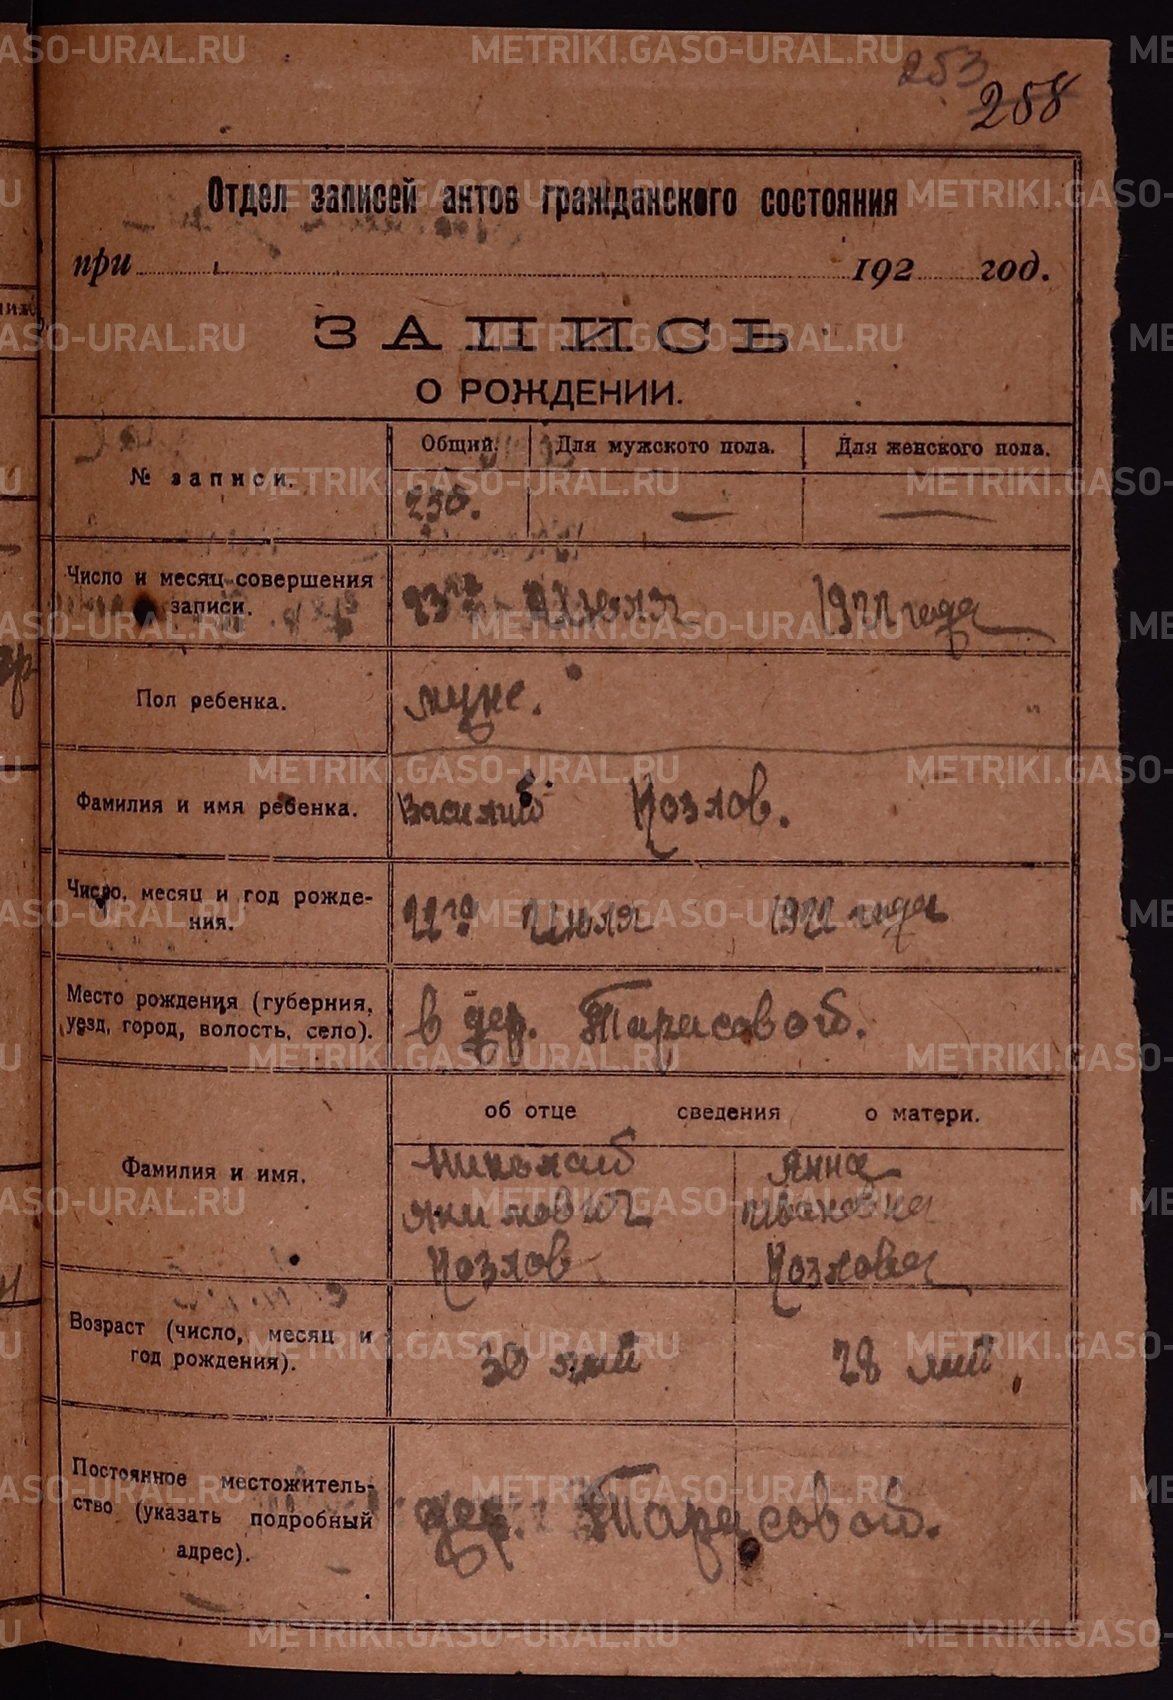 253
258
Отдел записей актов гражданского состояния
при 192 год.
ЗАПИСЬ
О РОЖДЕНИИ.
№ записи.
Общий. Для мужского пола. Для женского пола.
250. — —
Число и месяц совершения записи.
23го Июля 1922 года
Пол ребенка.
муж.
Фамилия и имя ребенка.
Василий Козлов.
Число, месяц и год рожде-
ния.
22го Июля 1922 года
Место рождения (губерния,
уезд, город, волость, село).
в дер. Тарасовой.
об отце сведения о матери.
Фамилия и имя.
Николай
Якимович
Козлов
Анна
Ивановна
Козлова
Возраст (число, месяц и
год рождения).
30 лет
28 лет
Постоянное местожитель-
ство (указать подробный
адрес).
дер. Тарасовой.
METRIKI.GASO-URAL.RU